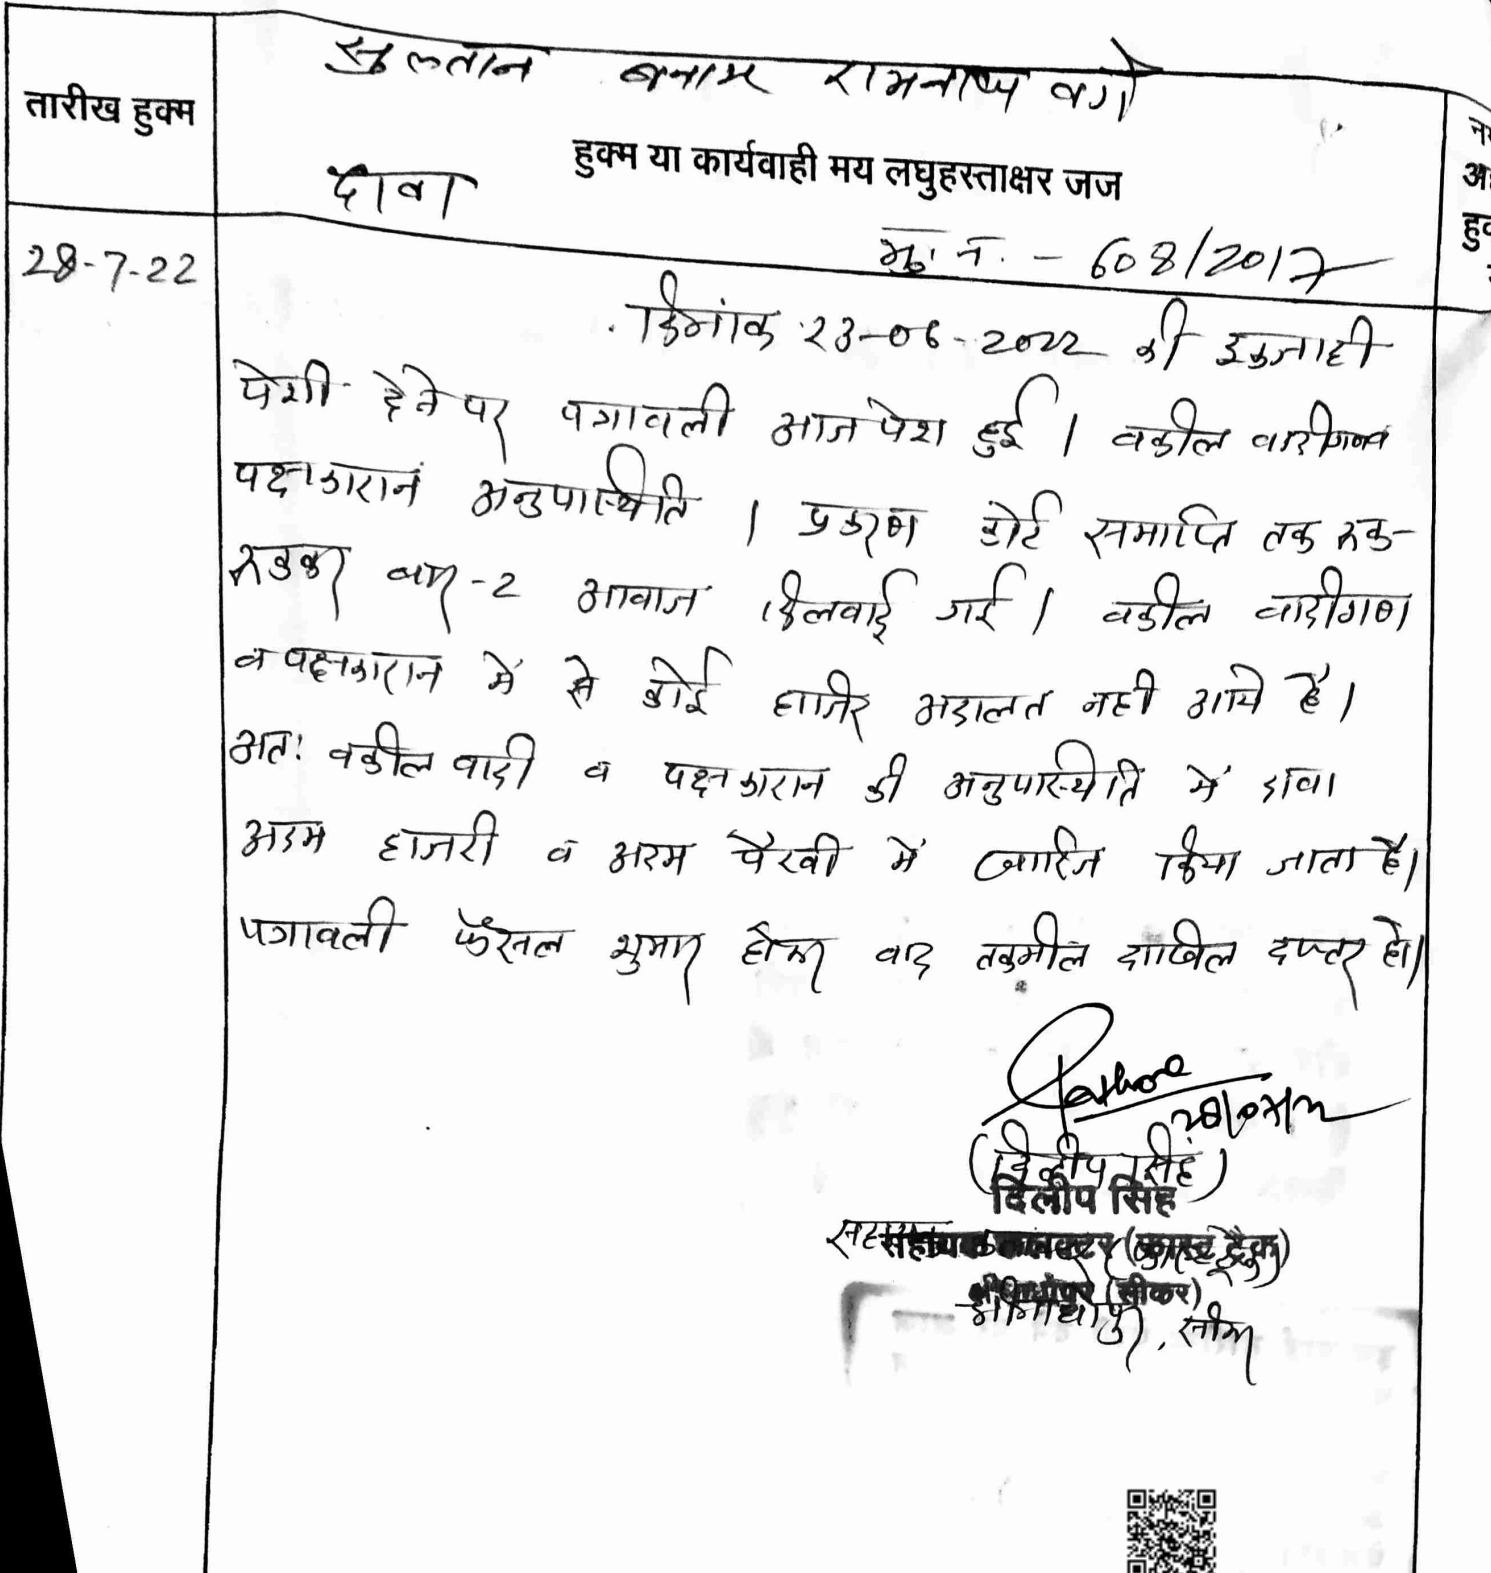 सुल्तान बनाम रामनाथ वगै
तारीख हुक्म
हुक्म या कार्यवाही मय लघुहस्ताक्षर जज
दावा
मु. न. - 608/2017
28-7-22
दिनांक 23-06-2022 की इकजाही
पेशी देने पर पत्रावली आज पेश हुई । वकील वादीगण व
पक्षकारान अनुपस्थिति । प्रकरण कोर्ट समाप्ति तक रुक-
रुककर बार-2 आवाज दिलवाई गई । वकील वादीगण
व पक्षकारान में से कोई हाजिर अदालत नही आये है ।
अतः वकील वादी व पक्षकारान की अनुपस्थिति में दावा
अदम हाजरी व अदम पैरवी में खारिज किया जाता है।
पत्रावली फैसल शुमार होकर बाद तकमील दाखिल दफ्तर हो।
Rathore
28/07/22
(दिलीप सिंह)
दिलीप सिंह
सहायक कलक्टर (फास्ट ट्रैक)
श्रीमाधोपुर (सीकर)
श्रीमाधोपुर, सीकर